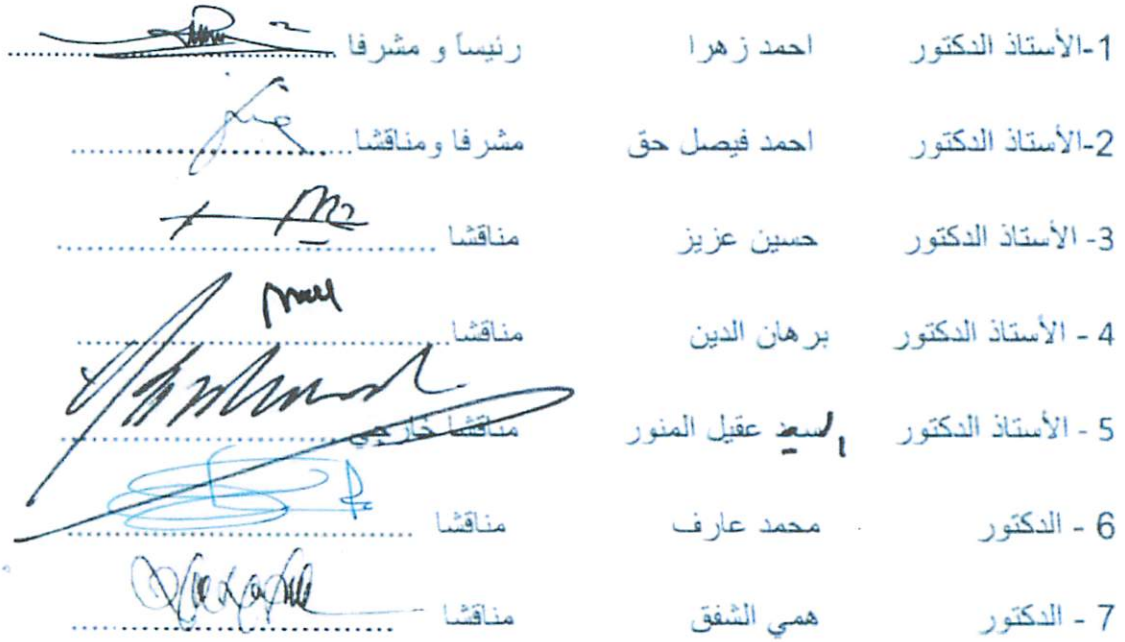 1-الأستاذ الدكتور احمد زهرا رئيساً و مشرفا
2-الأستاذ الدكتور احمد فيصل حق مشرفا ومناقشا
3- الأستاذ الدكتور حسين عزيز مناقشا
4 - الأستاذ الدكتور برهان الدين مناقشا
5 - الأستاذ الدكتور السعيد عقيل المنور مناقشا خارجي
6 - الدكتور محمد عارف مناقشا
7 - الدكتور همي الشفق مناقشا